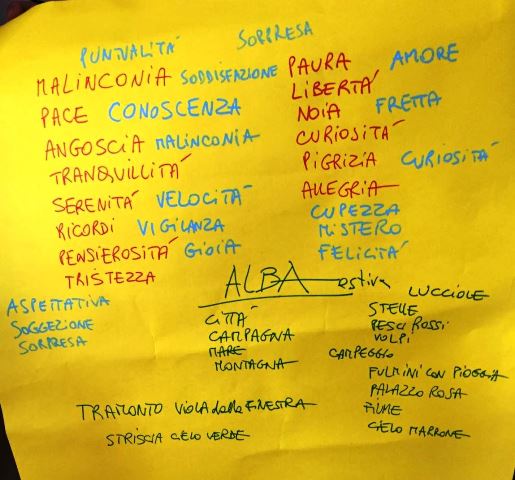 PUNTUALITÁ SORPRESA
MALINCONIA SODDISFAZIONE
PACE CONOSCENZA
ANGOSCIA MALINCONIA
TRANQUILLITÁ
SERENITÁ VELOCITÁ
RICORDI VIGILANZA
PENSIEROSITÁ GIOIA
TRISTEZZA
PAURA AMORE
LIBERTÁ
NOIA FRETTA
CURIOSITÁ
PIGRIZIA CURIOSITÁ
ALLEGRIA
CUPEZZA
MISTERO
FELICITÁ
ASPETTATIVA
SOGGEZIONE
SORPRESA
ALBA estiva
CITTÁ
CAMPAGNA
MARE
MONTAGNA
LUCCIOLE
STELLE
PESCI ROSSI
VOLPI
CAMPEGGIO
FULMINI CON PIOGGIA
PALAZZO ROSA
FIUME
CIELO MARRONE
TRAMONTO VIOLA dalla FINESTRA
STRISCIA CIELO VERDE